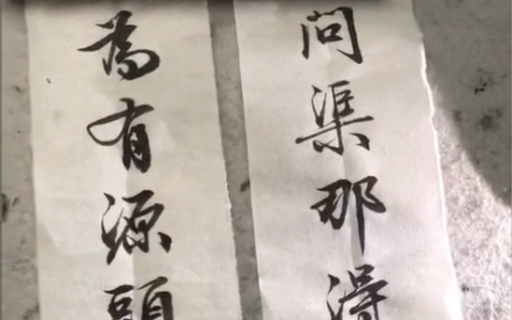 问渠那得
為有源頭